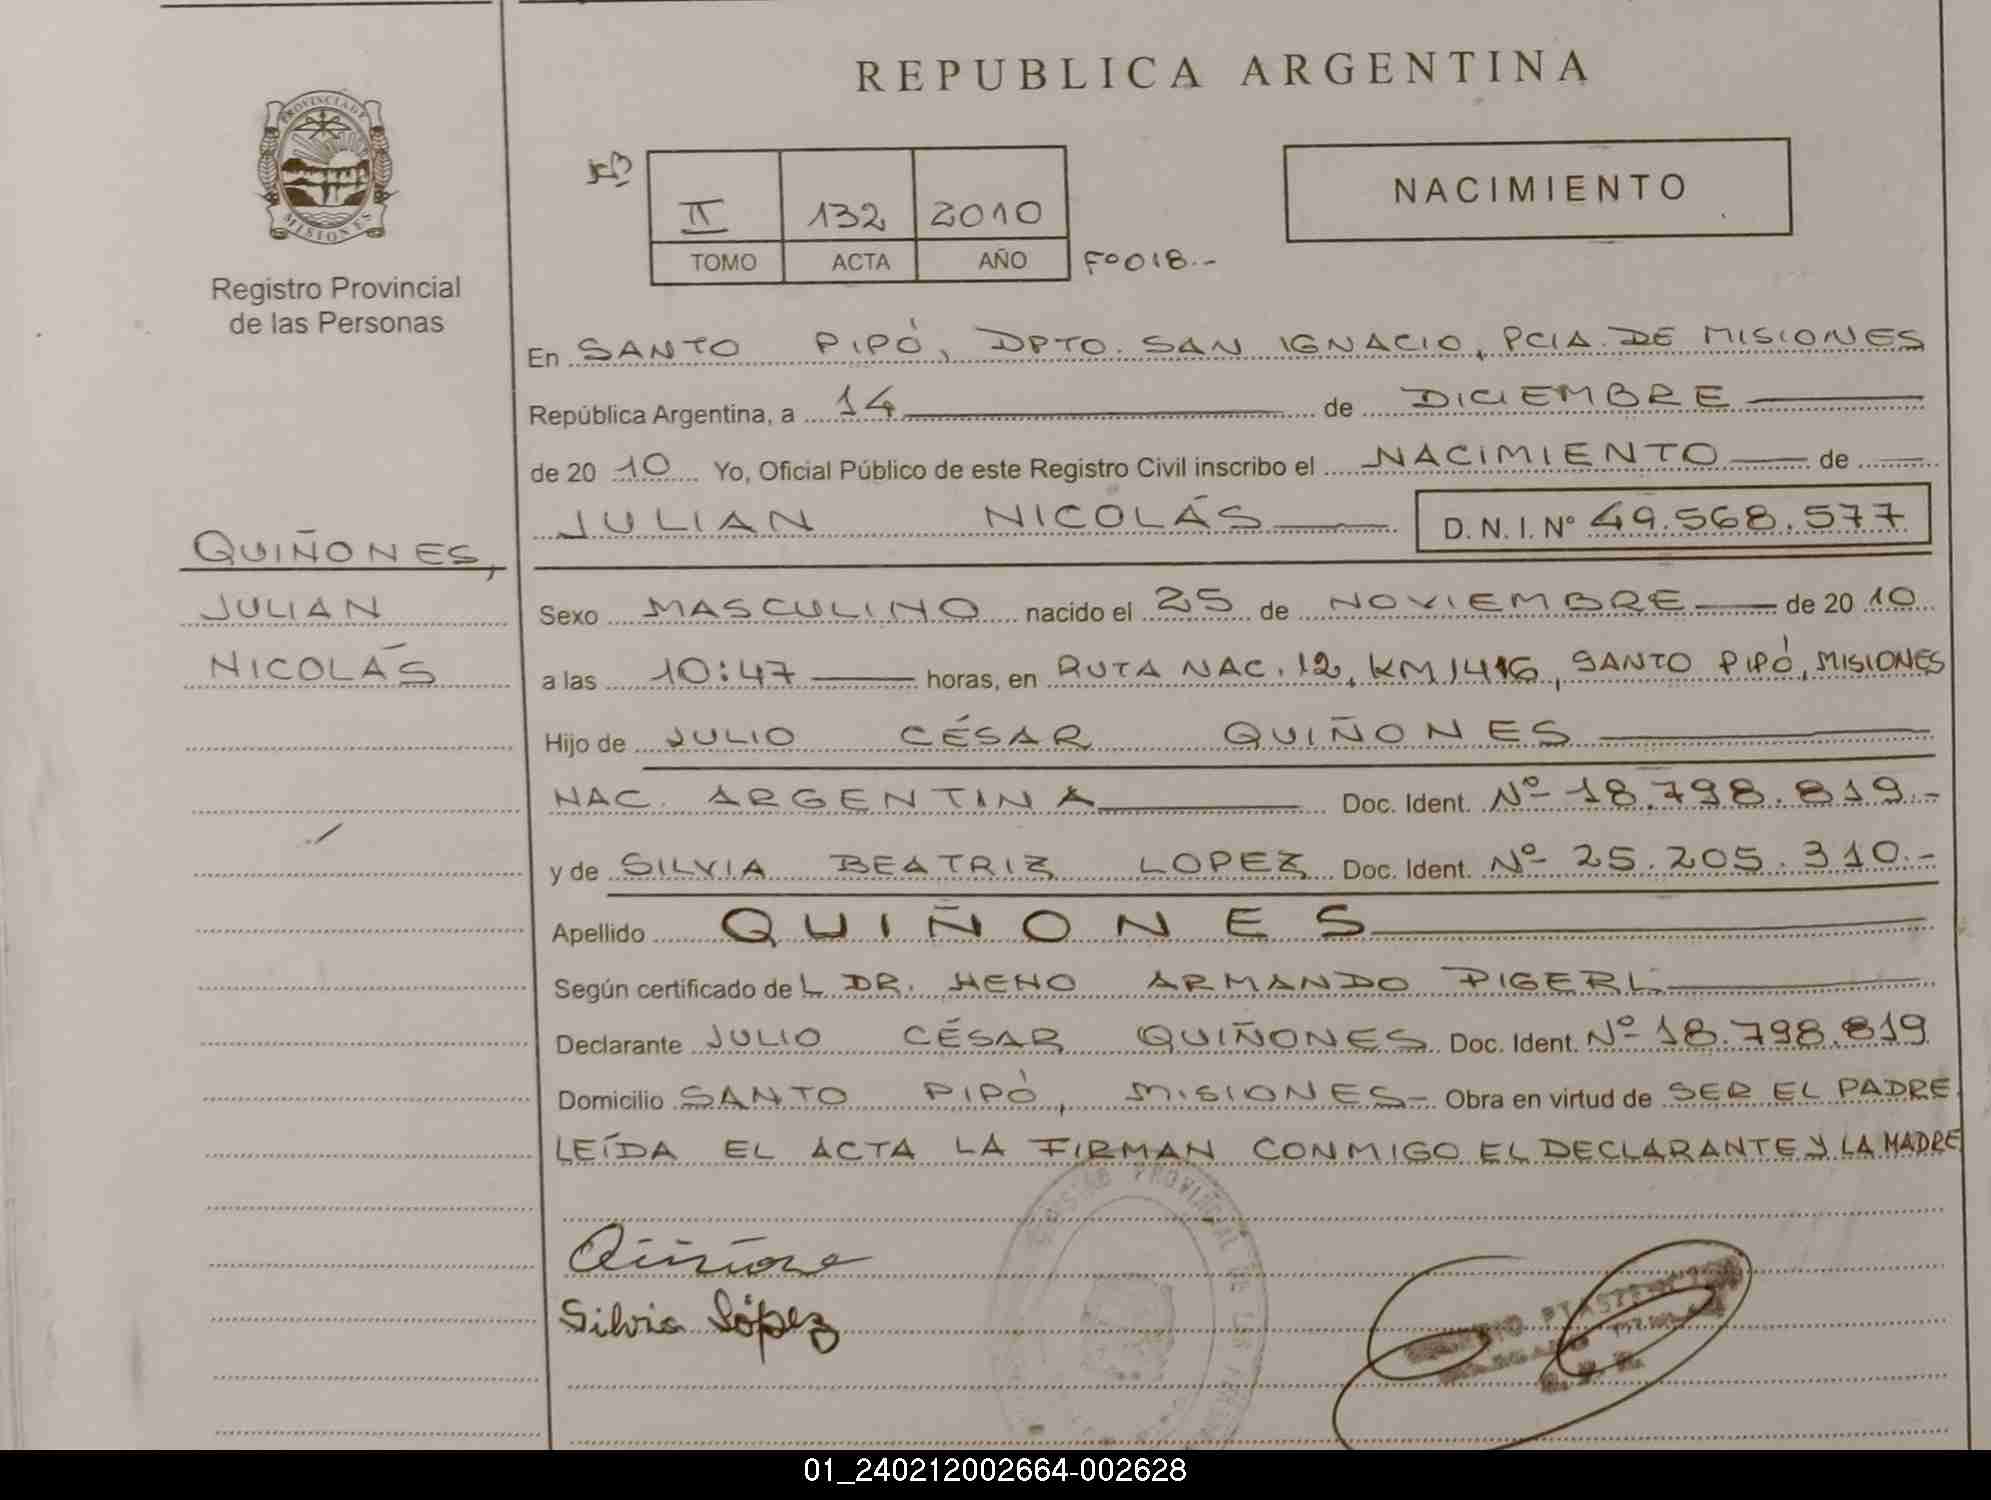 REPUBLICA ARGENTINA
PROVINCIA DE
MISIONES
Registro Provincial
de las Personas
II 132 2010
TOMO ACTA AÑO Fº 018.-
NACIMIENTO
En SANTO PIPÓ, DPTO. SAN IGNACIO, PCIA. DE MISIONES
República Argentina, a 14 de DICIEMBRE
de 20 10 Yo, Oficial Público de este Registro Civil inscribo el NACIMIENTO de
JULIAN NICOLÁS D. N. I. Nº 49.568.577
QUIÑONES,
JULIAN
NICOLÁS
Sexo MASCULINO nacido el 25 de NOVIEMBRE de 20 10
a las 10:47 horas, en RUTA NAC. 12, KM 1416, SANTO PIPÓ, MISIONES
Hijo de JULIO CÉSAR QUIÑONES
NAC. ARGENTINA Doc. Ident. Nº 18.798.819.-
y de SILVIA BEATRIZ LOPEZ Doc. Ident. Nº 25.205.310.-
Apellido QUIÑONES
Según certificado de L DR. HENO ARMANDO PIGERL
Declarante JULIO CÉSAR QUIÑONES Doc. Ident. Nº 18.798.819
Domicilio SANTO PIPÓ, MISIONES- Obra en virtud de SER EL PADRE
LEÍDA EL ACTA LA FIRMAN CONMIGO EL DECLARANTE Y LA MADRE
Silvia López
PROVINCIAL DE LAS
01_240212002664-002628